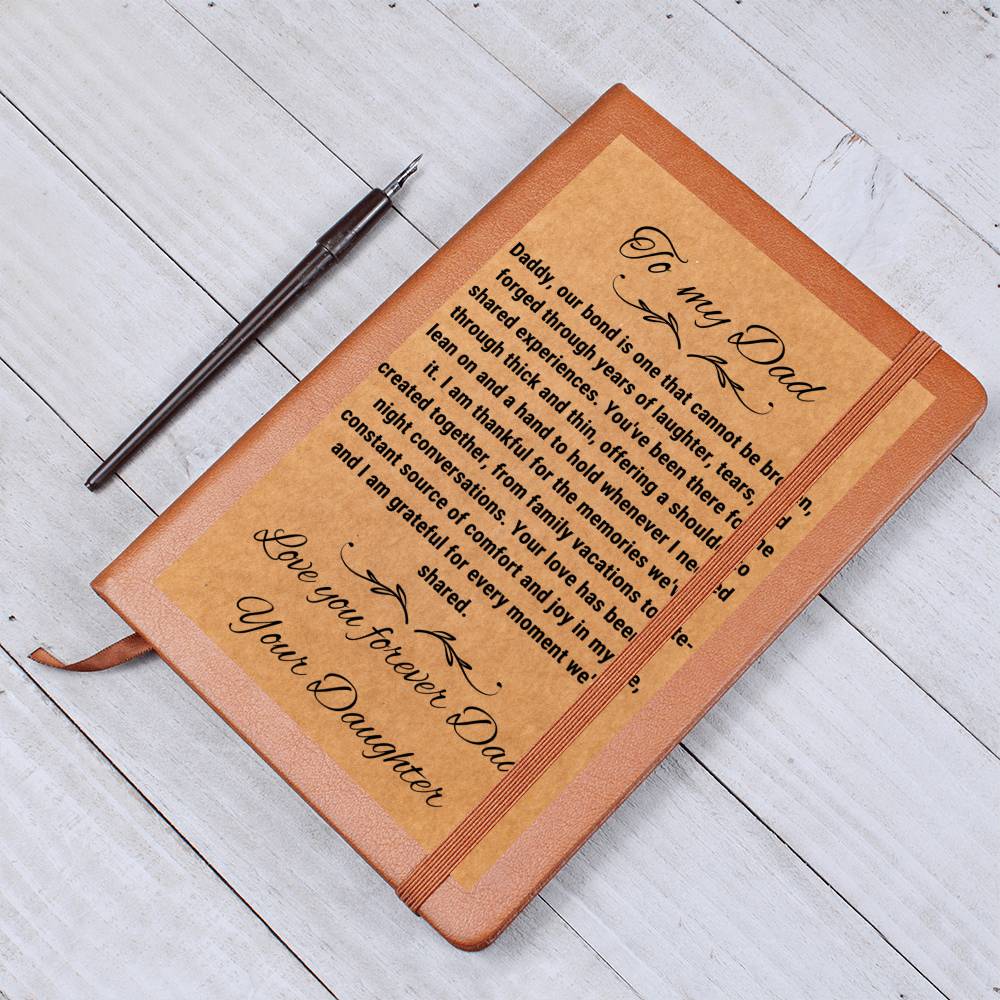 To my Dad
Daddy, our bond is one that cannot be broken,
forged through years of laughter, tears, and
shared experiences. You've been there for me
through thick and thin, offering a shoulder to
lean on and a hand to hold whenever I needed
it. I am thankful for the memories we've
created together, from family vacations to late-
night conversations. Your love has been
constant source of comfort and joy in my life,
and I am grateful for every moment we've
shared.
Love you forever Dad
Your Daughter